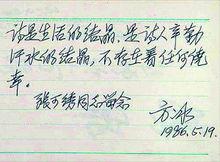 诗是生活的结晶,是诗人辛勤
汗水的结晶,不存在着任何侥
幸。
张可绣同志留念
方冰
1986.5.19.